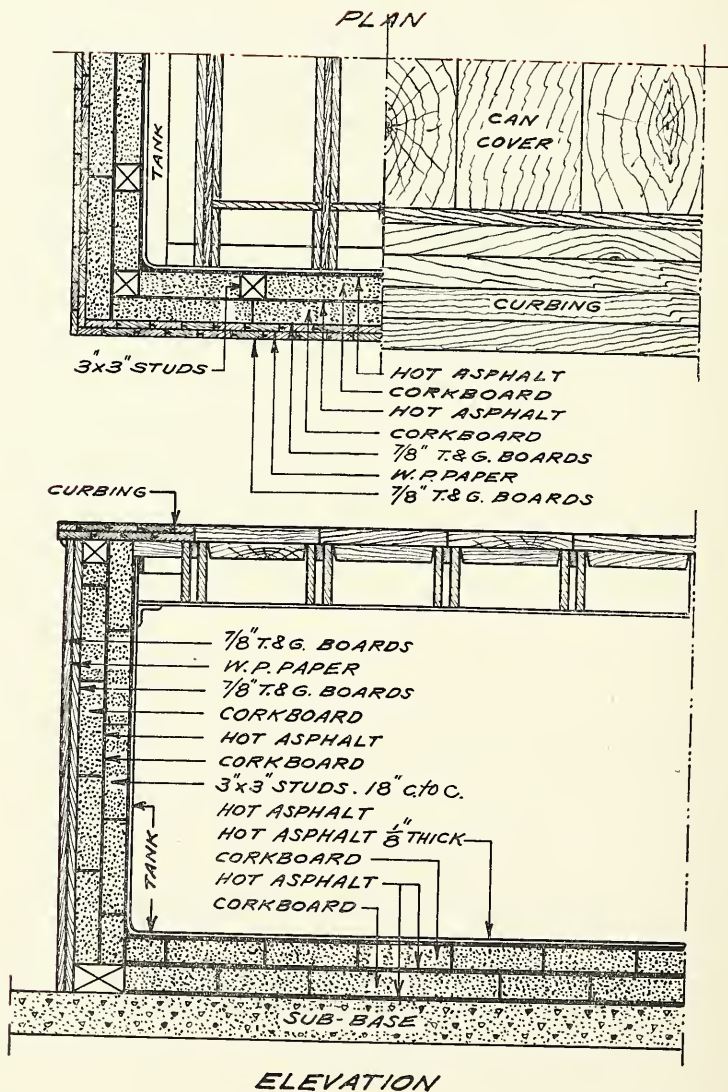 PLAN
TANK
CAN
COVER
CURBING
3"x3" STUDS
HOT ASPHALT
CORKBOARD
HOT ASPHALT
CORKBOARD
7/8" T.&G. BOARDS
W.P. PAPER
7/8" T.&G. BOARDS
CURBING
7/8" T.&G. BOARDS
W.P. PAPER
7/8" T.&G. BOARDS
CORKBOARD
HOT ASPHALT
CORKBOARD
3"x3" STUDS. 18" C. to C.
HOT ASPHALT
HOT ASPHALT 1/8" THICK
CORKBOARD
HOT ASPHALT
CORKBOARD
TANK
SUB-BASE
ELEVATION